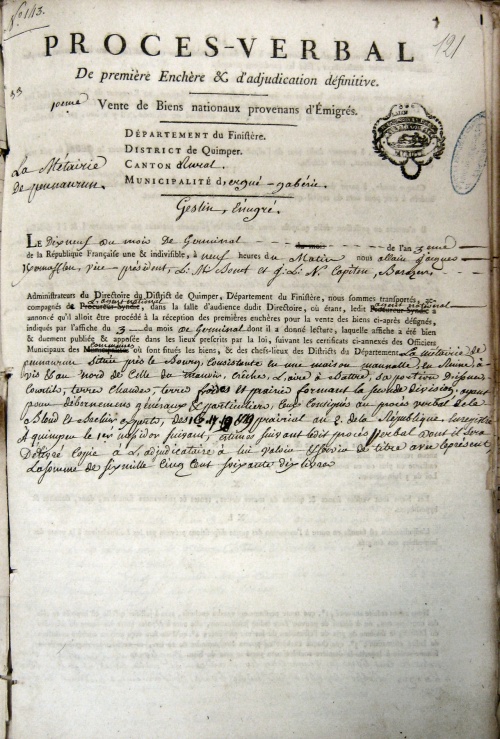 N.º 143.
121
PROCES-VERBAL
De première Enchère & d'adjudication définitive.
33
Vente de Biens nationaux provenans d'Émigrés.
DÉPARTEMENT du Finistère.
DISTRICT de Quimper.
CANTON Rural.
MUNICIPALITÉ d'ergué-gabéric.
La Métairie
de pennarun.
Gestin, Émigré.
LE Dix neuf du mois de Germinal de l'an 3eme
de la République Française une & indivisible, à neuf heures du Matin nous allain jacques
vice-président,
Administrateurs du Directoire du District de Quimper, Département du Finistère, nous sommes transportés, ac-
L'agent national agent national
compagnés du Procureur-Syndic, dans la salle d'audience dudit Directoire, où étant, ledit Procureur-Syndic a
annoncé qu'il alloit être procédé à la réception des premières enchères pour la vente des biens ci-après désignés,
indiqués par l'affiche du 3 du mois de Germinal dont il a donné lecture, laquelle affiche a été bien
& duement publiée & apposée dans les lieux prescrits par la loi, suivant les certificats ci-annexés des Officiers
Municipaux des communes où sont situés les biens, & des chefs-lieux des Districts du Département. La métairie de
pennarun Située près le Bourg, Consistante en une maison manale, en Ruine, à
vis et au nord de Celle du manoir, Crèches, L'aire à Battre, sa portion
Courtils, terre chaudes, terre froides et prairie formant la Seconde division, ayant
pour débornemens généraux & particuliers, Ceux Consignés au procès verbal de
experts, des prairial an 2. de la République, Enregistré
A quimper le 1er suivant, estimés suivant ledit procès verbal dont il Sera
Délivré Copie à L'adjudicataire à lui valoir et Servir de titre avec le présent
La Somme de Six mille Cinq Cent Soixante dix livres